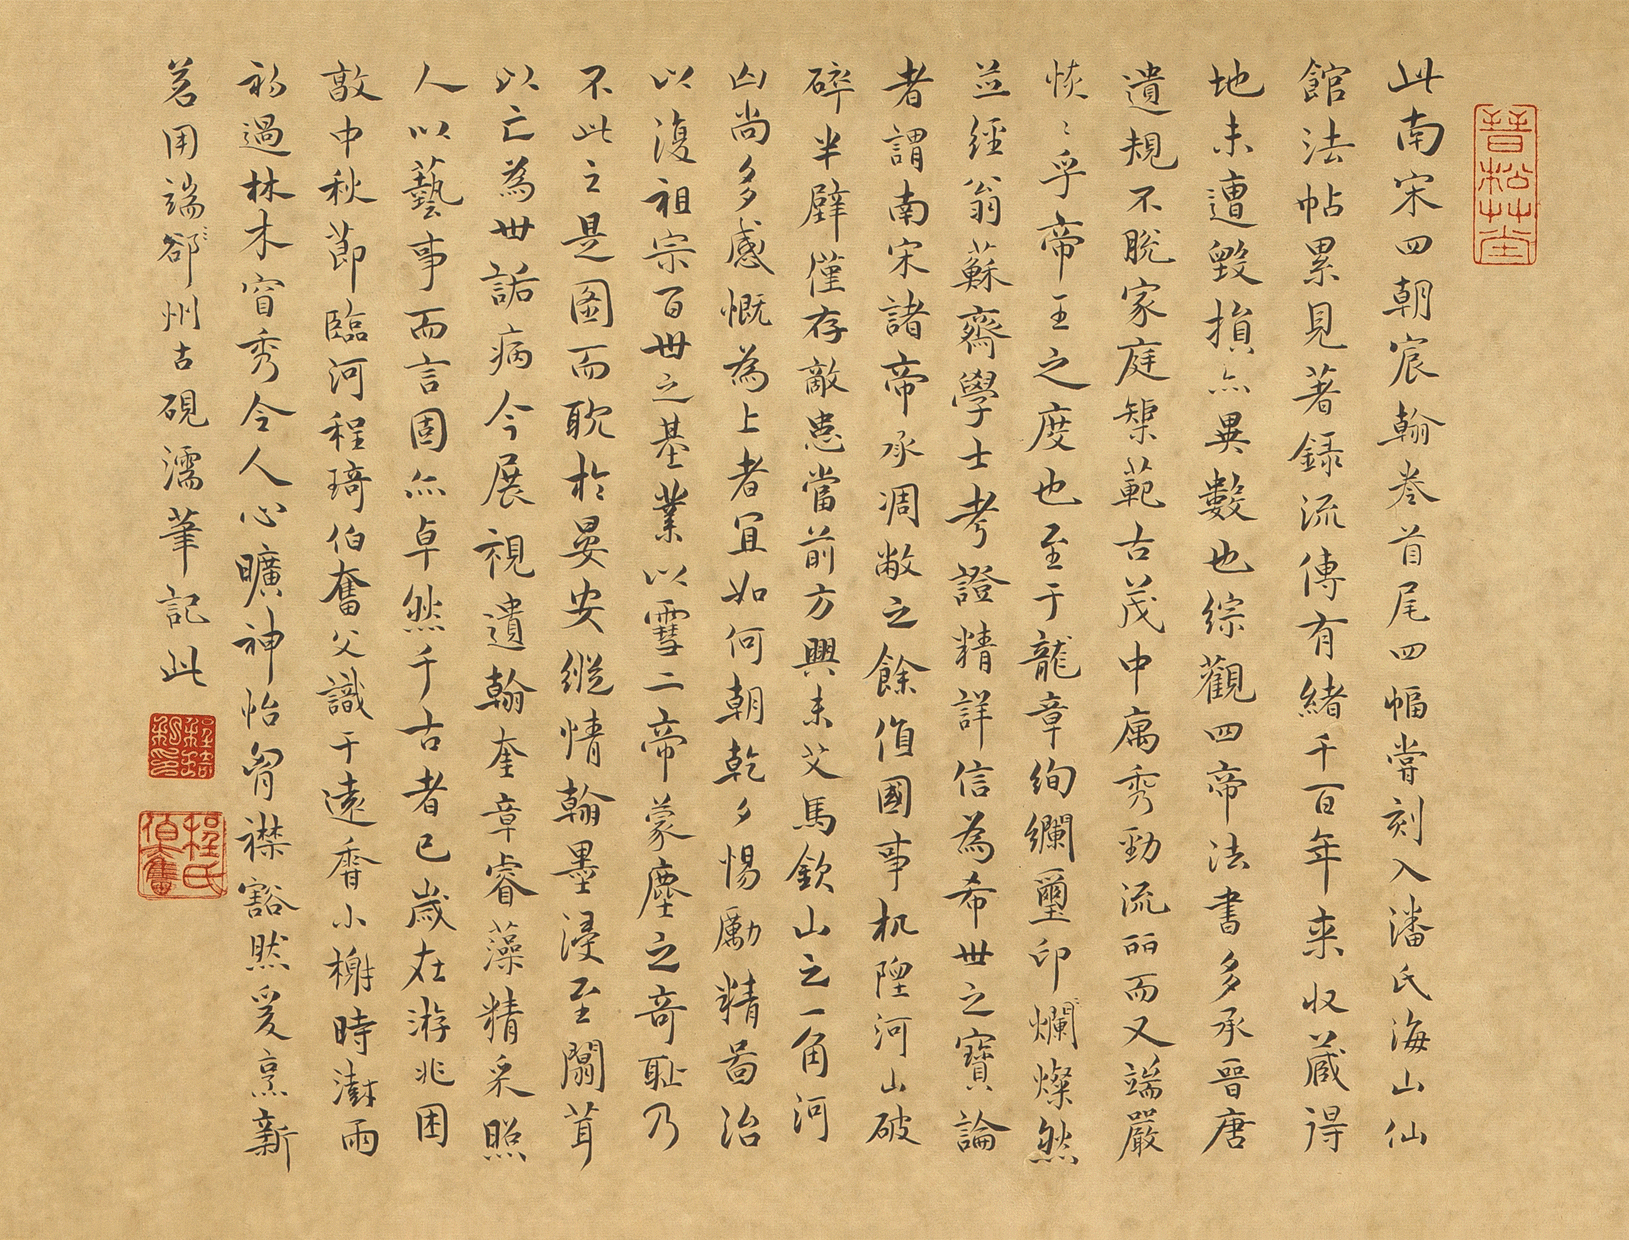 晉松草堂
此南宋四朝宸翰卷首尾四幅嘗刻入潘氏海山仙
館法帖累見著錄流傳有緒千百年來收藏得
地未遭毀損亦異數也綜觀四帝法書多承晉唐
遺規不脫家庭榘範古茂中寓秀勁流丽而又端嚴
恢〻乎帝王之度也至于龍章絢斕璽印爛燦然
並經翁蘇齋學士考證精詳信為希世之寶論
者謂南宋諸帝承凋敝之餘值國事杌隉河山破
碎半壁僅存敵患當前方興未艾馬欽山之一角河
山尚多感慨為上者宜如何朝乾夕惕勵精啚治
以復祖宗百世之基業以雪二帝蒙塵之奇耻乃
不此之是圖而耽於晏安縱情翰墨浸至闒茸
以亡為世詬病今展視遺翰奎章睿藻精采照
人以藝事而言固亦卓然千古者已歲在游兆困
敦中秋節臨河程琦伯奮父識于遠香小榭時澍雨
初過林木窅秀令人心曠神怡胷襟豁然爰烹新
茗用端郤州古硯濡筆記此
程琦利印
程氏伯奮